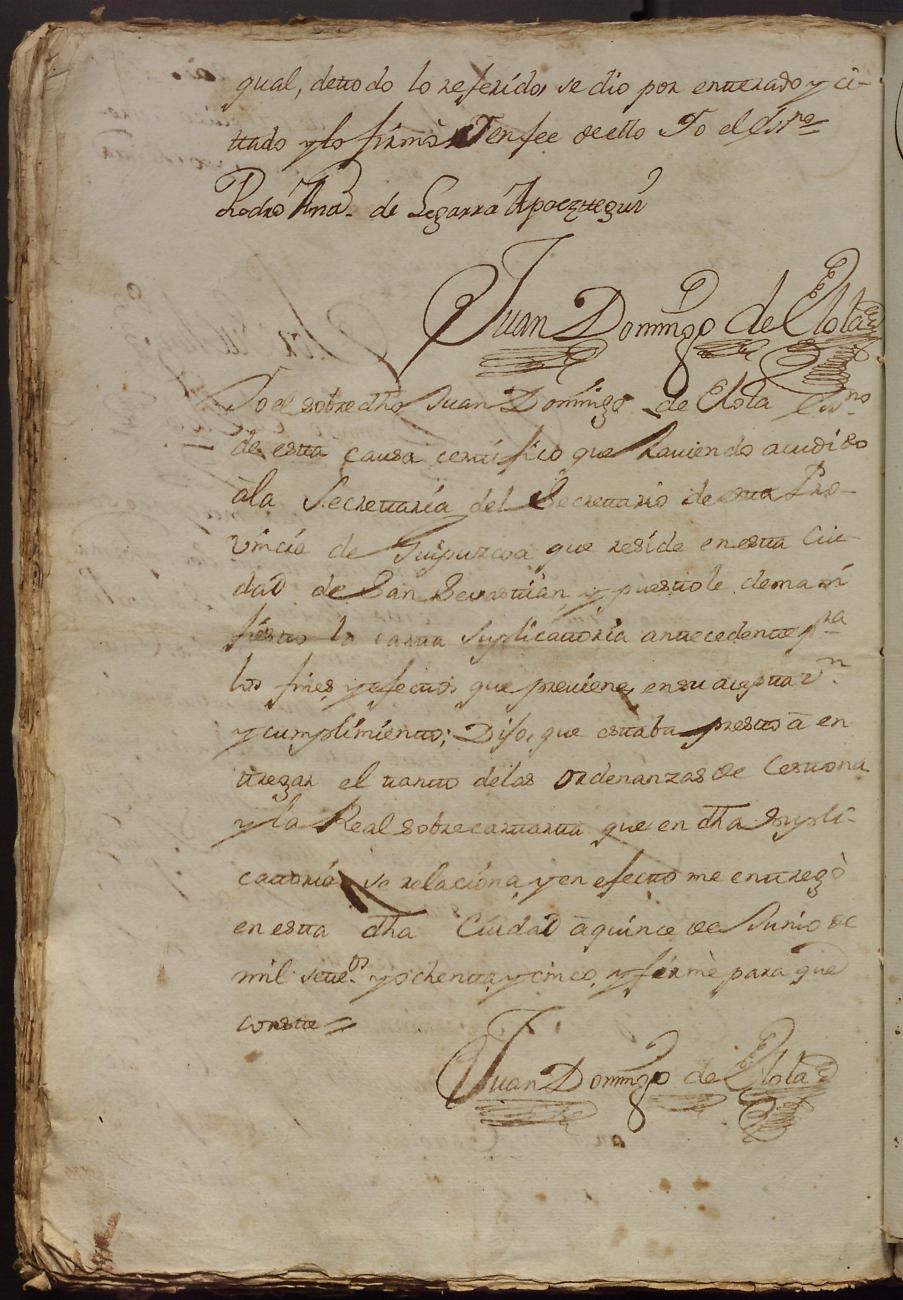 qual, de todo lo referido, se dio por enterado y ci-
tado y lo firmò, En fee de ello Yo el Essno
Pedro Ana. de Legarra Apoeztegui
Juan Domingo de Elola
Yo el sobre dho Juan Domingo de Elola Essno
de esta causa certifico que haviendo acudido
à la Secretaria del Secretario de esta Pro-
vincia de Guipuzcoa que reside en esta Ciu-
dad de San Sevastian y puestole de mani
fiesto la carta suplicatoria antecedente pra
los fines y efectos que previene, en su aceptazn.
y cumplimiento; Dijo, que estaba presto à en
tregar el tanto de las Ordenanzas de Cestona
y la Real sobrecartarta que en dha supli-
catoria, se relaciona, y en efecto me entregò
en esta dha Ciudad à quince de Junio de
mil setetos. y ochenta y cinco, y firmè para que
conste =
Juan Domingo de Elola